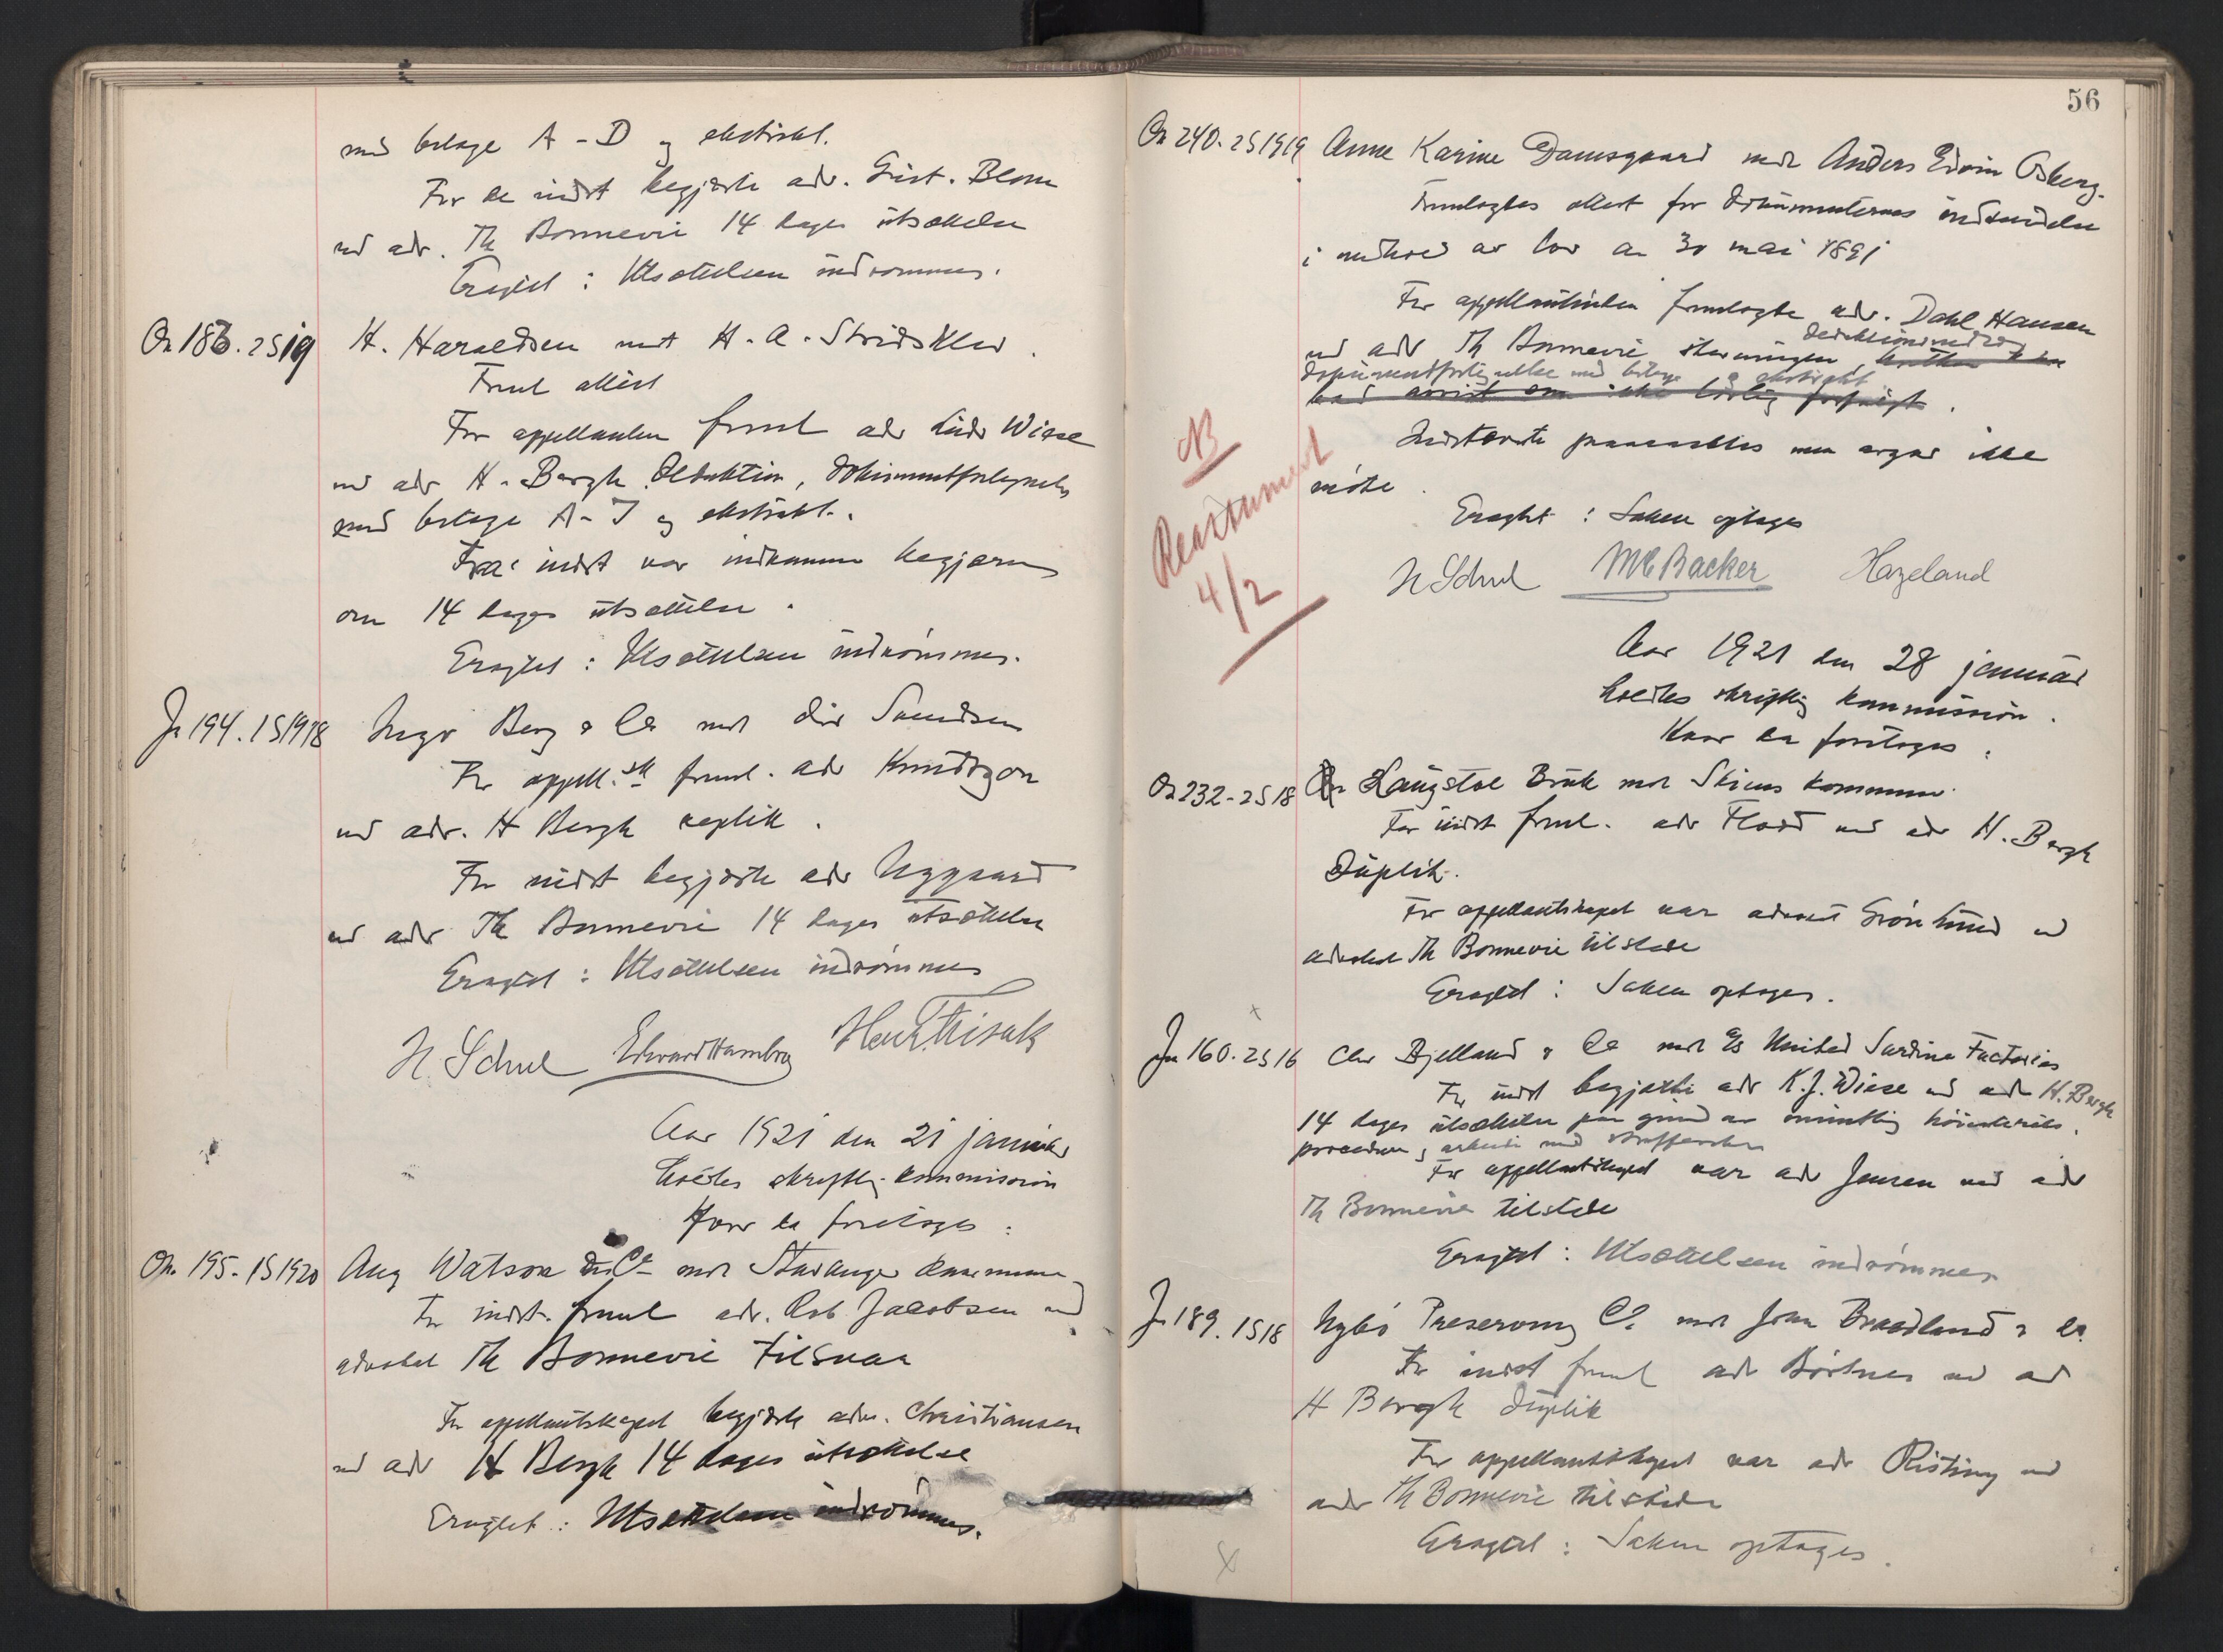 med bilage A - D og ekstrakt.
For de indst begjærte adv. Grist. Blom
ved adv. Th Bonnevie 14 dages utsættelse
Eragtet : Utsættelsen indrømmes.
On 186. 2S 19 H. Haraldsen mot H. A. Stridsklev.
Freml attest
For appellanten freml adv Wiese
ved adv H. Bergh deduktion, dokumentfortegnelse
med bilage A - I og ekstrakt.
Fra indst var indkommen begjæring
om 14 dages utsættelse.
Eragtet : Utsættelsen indrømmes.
Jn 194. 1S 1918 Berg & Co mot
For appell.sk freml. adv Knudtzon
ved adv. H Bergh replik.
For indst begjærte adv Nygaard
ved adv Th Bonnevie 14 dages utsættelse
Eragtet : Utsættelsen indrømmes
N. Schul Edvard Hambro
Aar 1921 den 21 januar
holdtes skriftlig kommission
Hvor da foretoges :
On. 195 - 1S 1920 Aug Watson & Co mot Stavanger kommune
For indst. freml adv. Rob Jacobsen ved
advokat Th Bonnevie tilsvar
For appellantskapet begjærte adv. Christiansen
ved adv H Bergh 14 dages utsættelse
Eragtet : Utsættelsen indrømmes.
56
On 240. 2S 1919 Anne Karine Damsgaard mot Anders Edvin Osberg.
Fremlagtes attest for dokumenternes indsendelse
i medhold av lov av 30 mai 1891
For appellantinden fremlagte adv. Dahl Hansen
ved adv Th Bonnevie stevningen, deduktion
dokumentfortegnelse med bilage og ekstrakt
Indstevnte paaraabtes men avgav ikke
møte.
Eragtet : Saken optages
NB
4/2
N Schul MC Backer Hazeland
Aar 1921 den 28 januar
holdtes skriftlig kommission.
Hvor da foretoges :
On 232 - 2S 18 Langstøl Bruk mot Skiens kommune.
For indst freml. adv Flood ved adv H. Bergh
Duplik.
For appellantskapet var advokat Grønlund ved
advokat Th Bonnevie tilstede
Eragtet : Saken optages.
Jn 160. 2S 16 Chr Bjelland & Co mot As United Sardine Factories
For indst begjærte adv K. J. Wiese ved adv H. Bergh
14 dages utsættelse paa grund av mundtlig høiesterets
procedure, arbeide med straffesaker
For appellantskapet var adv Jensen ved adv
Th Bonnevie tilstede
Eragtet : Utsættelsen indrømmes
Jn 189. 1S 18 Nybø Preserving Co mot Johan Braadland & Co.
For indst freml adv Børtnes ved adv
H Bergh duplik
For appellantskapet var adv Risting ved
adv Th Bonnevie tilstede
Eragtet : Saken optages.